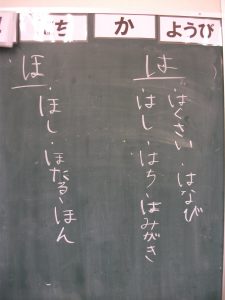 ち
か
ようび
は
・はくさい・はなび
・はし・はち・はみがき
ほ
・ほし・ほたる・ほん